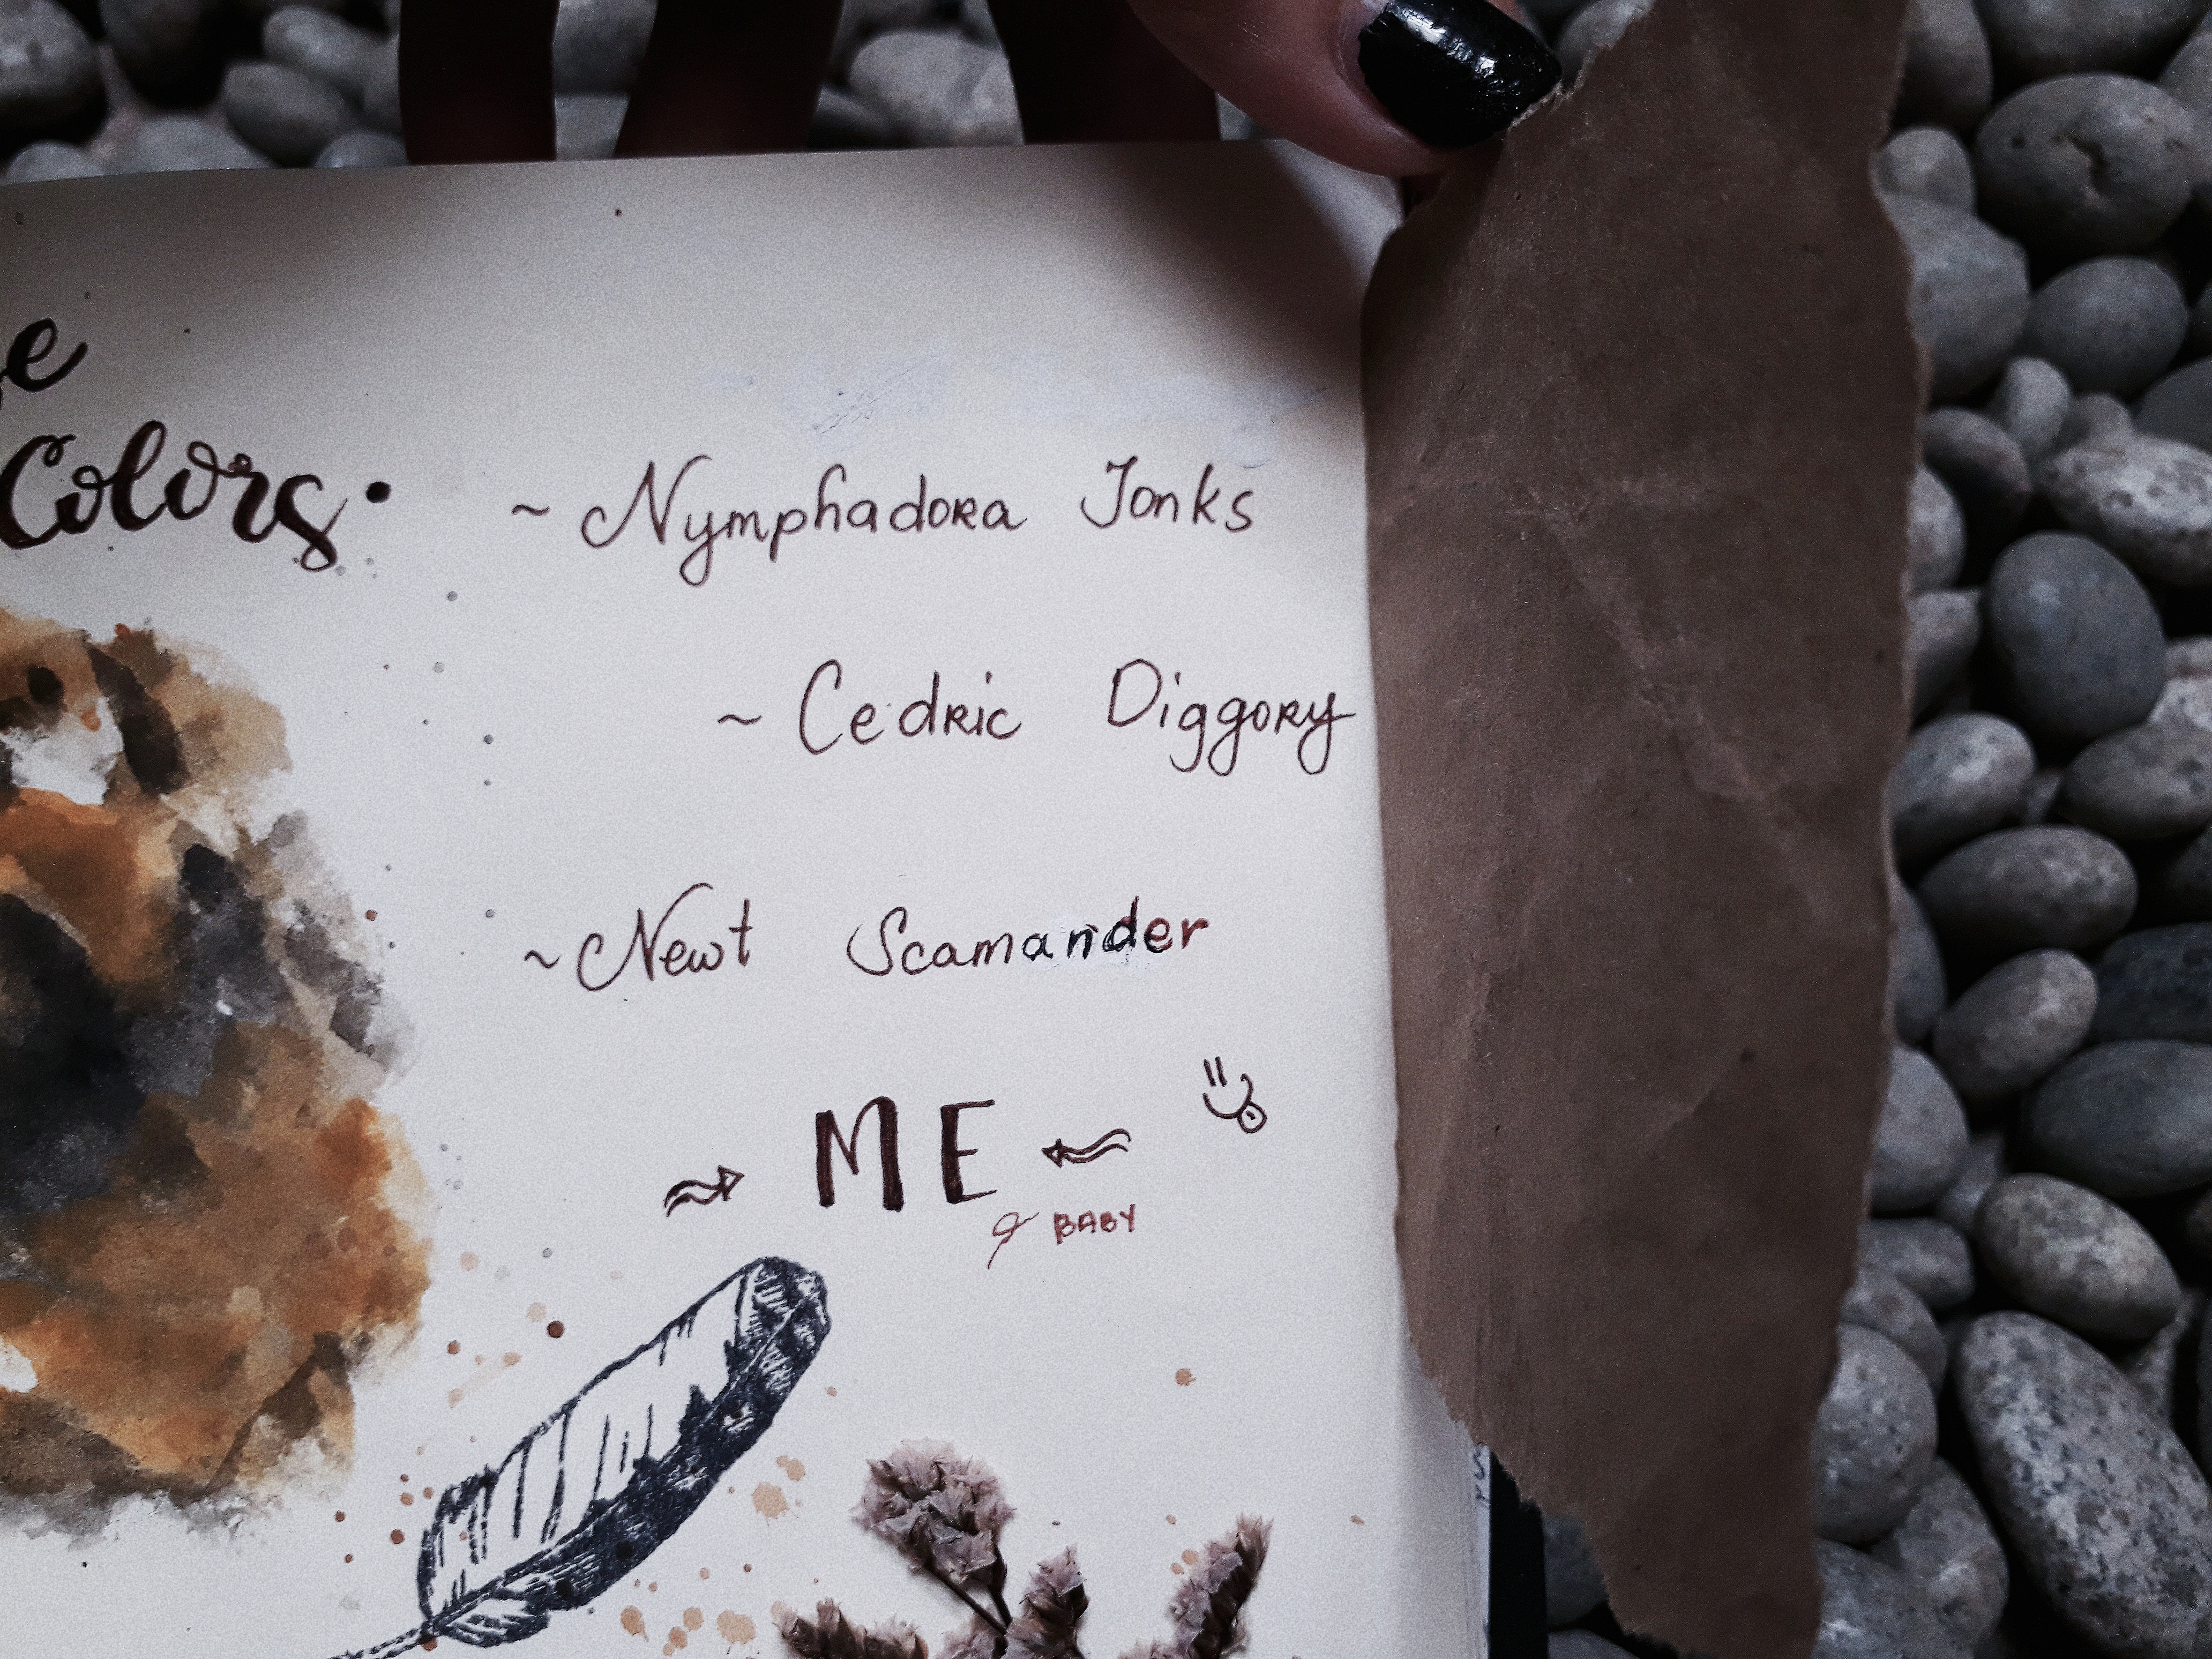 Colors.
~ Nymphadora Tonks
~ Cedric Diggory
~ Newt Scamander
ME
BABY